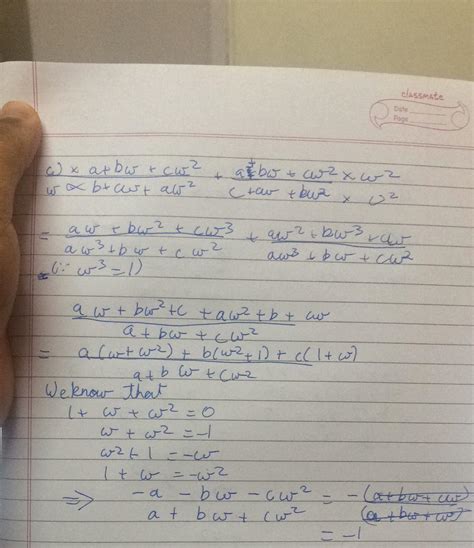 classmate
Date
Page
ω × a+bω + cω² + a+bω + cω² × ω²
ω × b+cω + aω² c+aω + bω² × ω²
= aω + bω² + cω³ + aω² + bω³ + cω
aω³ + bω + cω² aω³ + bω + cω²
(∵ ω³ = 1)
aω + bω² + c + aω² + b + cω
a + bω + cω²
= a(ω+ω²) + b(ω²+1) + c(1+ω)
a + bω + cω²
We know that
1 + ω + ω² = 0
ω + ω² = -1
ω² + 1 = -ω
1 + ω = -ω²
⇒ -a - bω - cω² = -(a + bω + cω)
a + bω + cω² (a + bω + ω²)
= -1